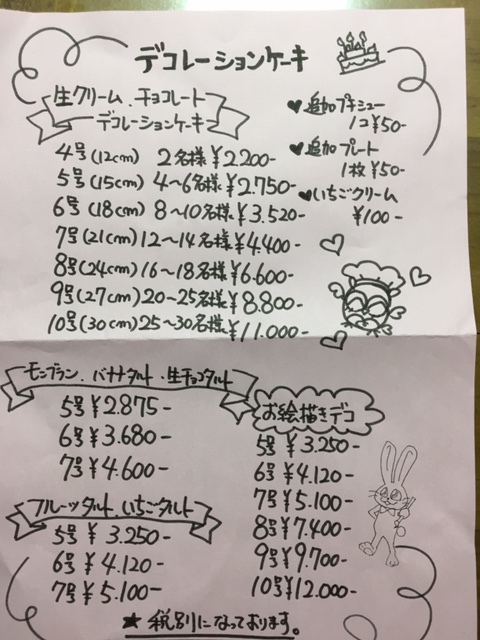 デコレーションケーキ
生クリーム、チョコレート
デコレーションケーキ
4号(12cm) 2名様¥2.200-
5号(15cm) 4~6名様¥2.750-
6号(18cm) 8~10名様¥3.520-
7号(21cm) 12~14名様¥4.400-
8号(24cm) 16~18名様¥6.600-
9号(27cm) 20~25名様¥8.800-
10号(30cm) 25~30名様¥11.000-
♥追加プチシュー
1コ¥50-
♥追加プレート
1枚¥50-
♥いちごクリーム
¥100-
モンブラン、バナナタルト・生チョコタルト
5号¥2.875-
6号¥3.680-
7号¥4.600-
フルーツタルト、いちごタルト
5号¥3.250-
6号¥4.120-
7号¥5.100-
お絵描きデコ
5号¥3.250-
6号¥4.120-
7号¥5.100-
8号¥7.400-
9号¥9.700-
10号¥12.000-
★税別になっております。